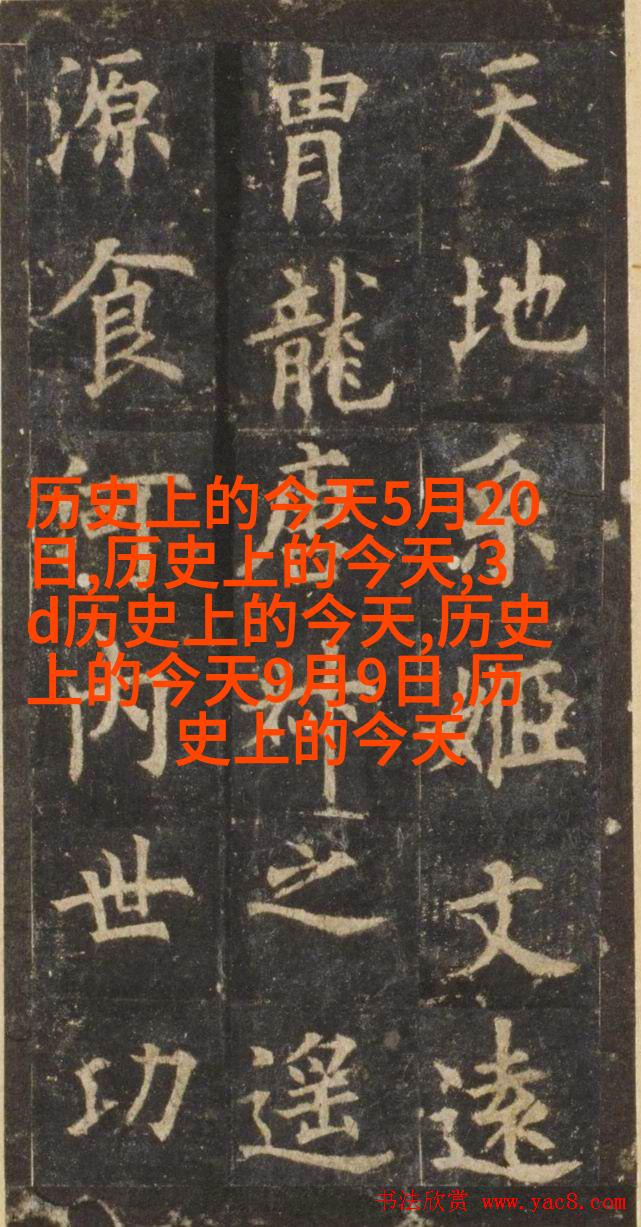 天地系姬文遠
胄龍唐之遥
源食内世功
历史上的今天5月20
日,历史上的今天,3
d历史上的今天,历史
上的今天9月9日,历
史上的今天
书法欣赏 www.yac8.com